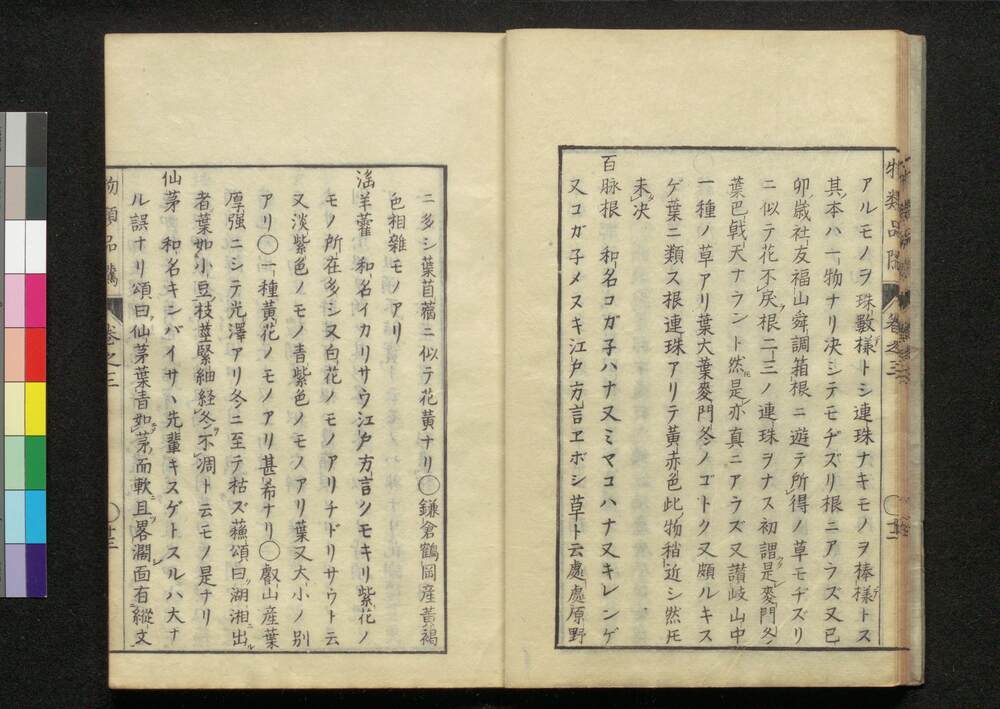 物類品隲 卷之三 ○廿二
アルモノヲ珠數様トシ連珠ナキモノヲ棒様トス
其本ハ一物ナリ决シテモヂズリ根ニアラズ又已
卯歳社友福山舜調箱根ニ遊テ所得ノ草モヂズリ
ニ似テ花不戻根二三ノ連珠ヲナス初謂是麥門冬
葉巴戟天ナラント然𪜈是亦真ニアラズ又讃岐山中
一種ノ草アリ葉大葉麥門冬ノゴトク又頗ルキス
ゲ葉ニ類ス根連珠アリテ黃赤色此物稍近シ然𪜈
未决
百脉根 和名コガ子ハナ又ミマコハナ又キレンゲ
又コガ子メヌキ江戸方言ヱボシ草ト云處處原野
ニ多シ葉苜蓿ニ似テ花黃ナリ○鎌倉鶴岡産黃褐
色相雜モノアリ
淫羊藿 和名イカリサウ江戸方言クモキリ紫花ノ
モノ所在多シ又白花ノモノアリチドリサウト云
又淡紫色ノモノ青紫色ノモノアリ葉又大小ノ別
アリ○一種黃花ノモノアリ甚希ナリ○叡山産葉
厚强ニシテ光澤アリ冬ニ至テ枯ズ蘓頌曰湖湘出
者葉如小豆枝莖緊細経冬不凋ト云モノ是ナリ
仙茅 和名キンバイサヽ先輩キスゲトスルハ大ナ
ル誤ナリ頌曰仙茅葉青如茅而軟且畧濶面有縱文
物類品隲 卷之三 ○廿三